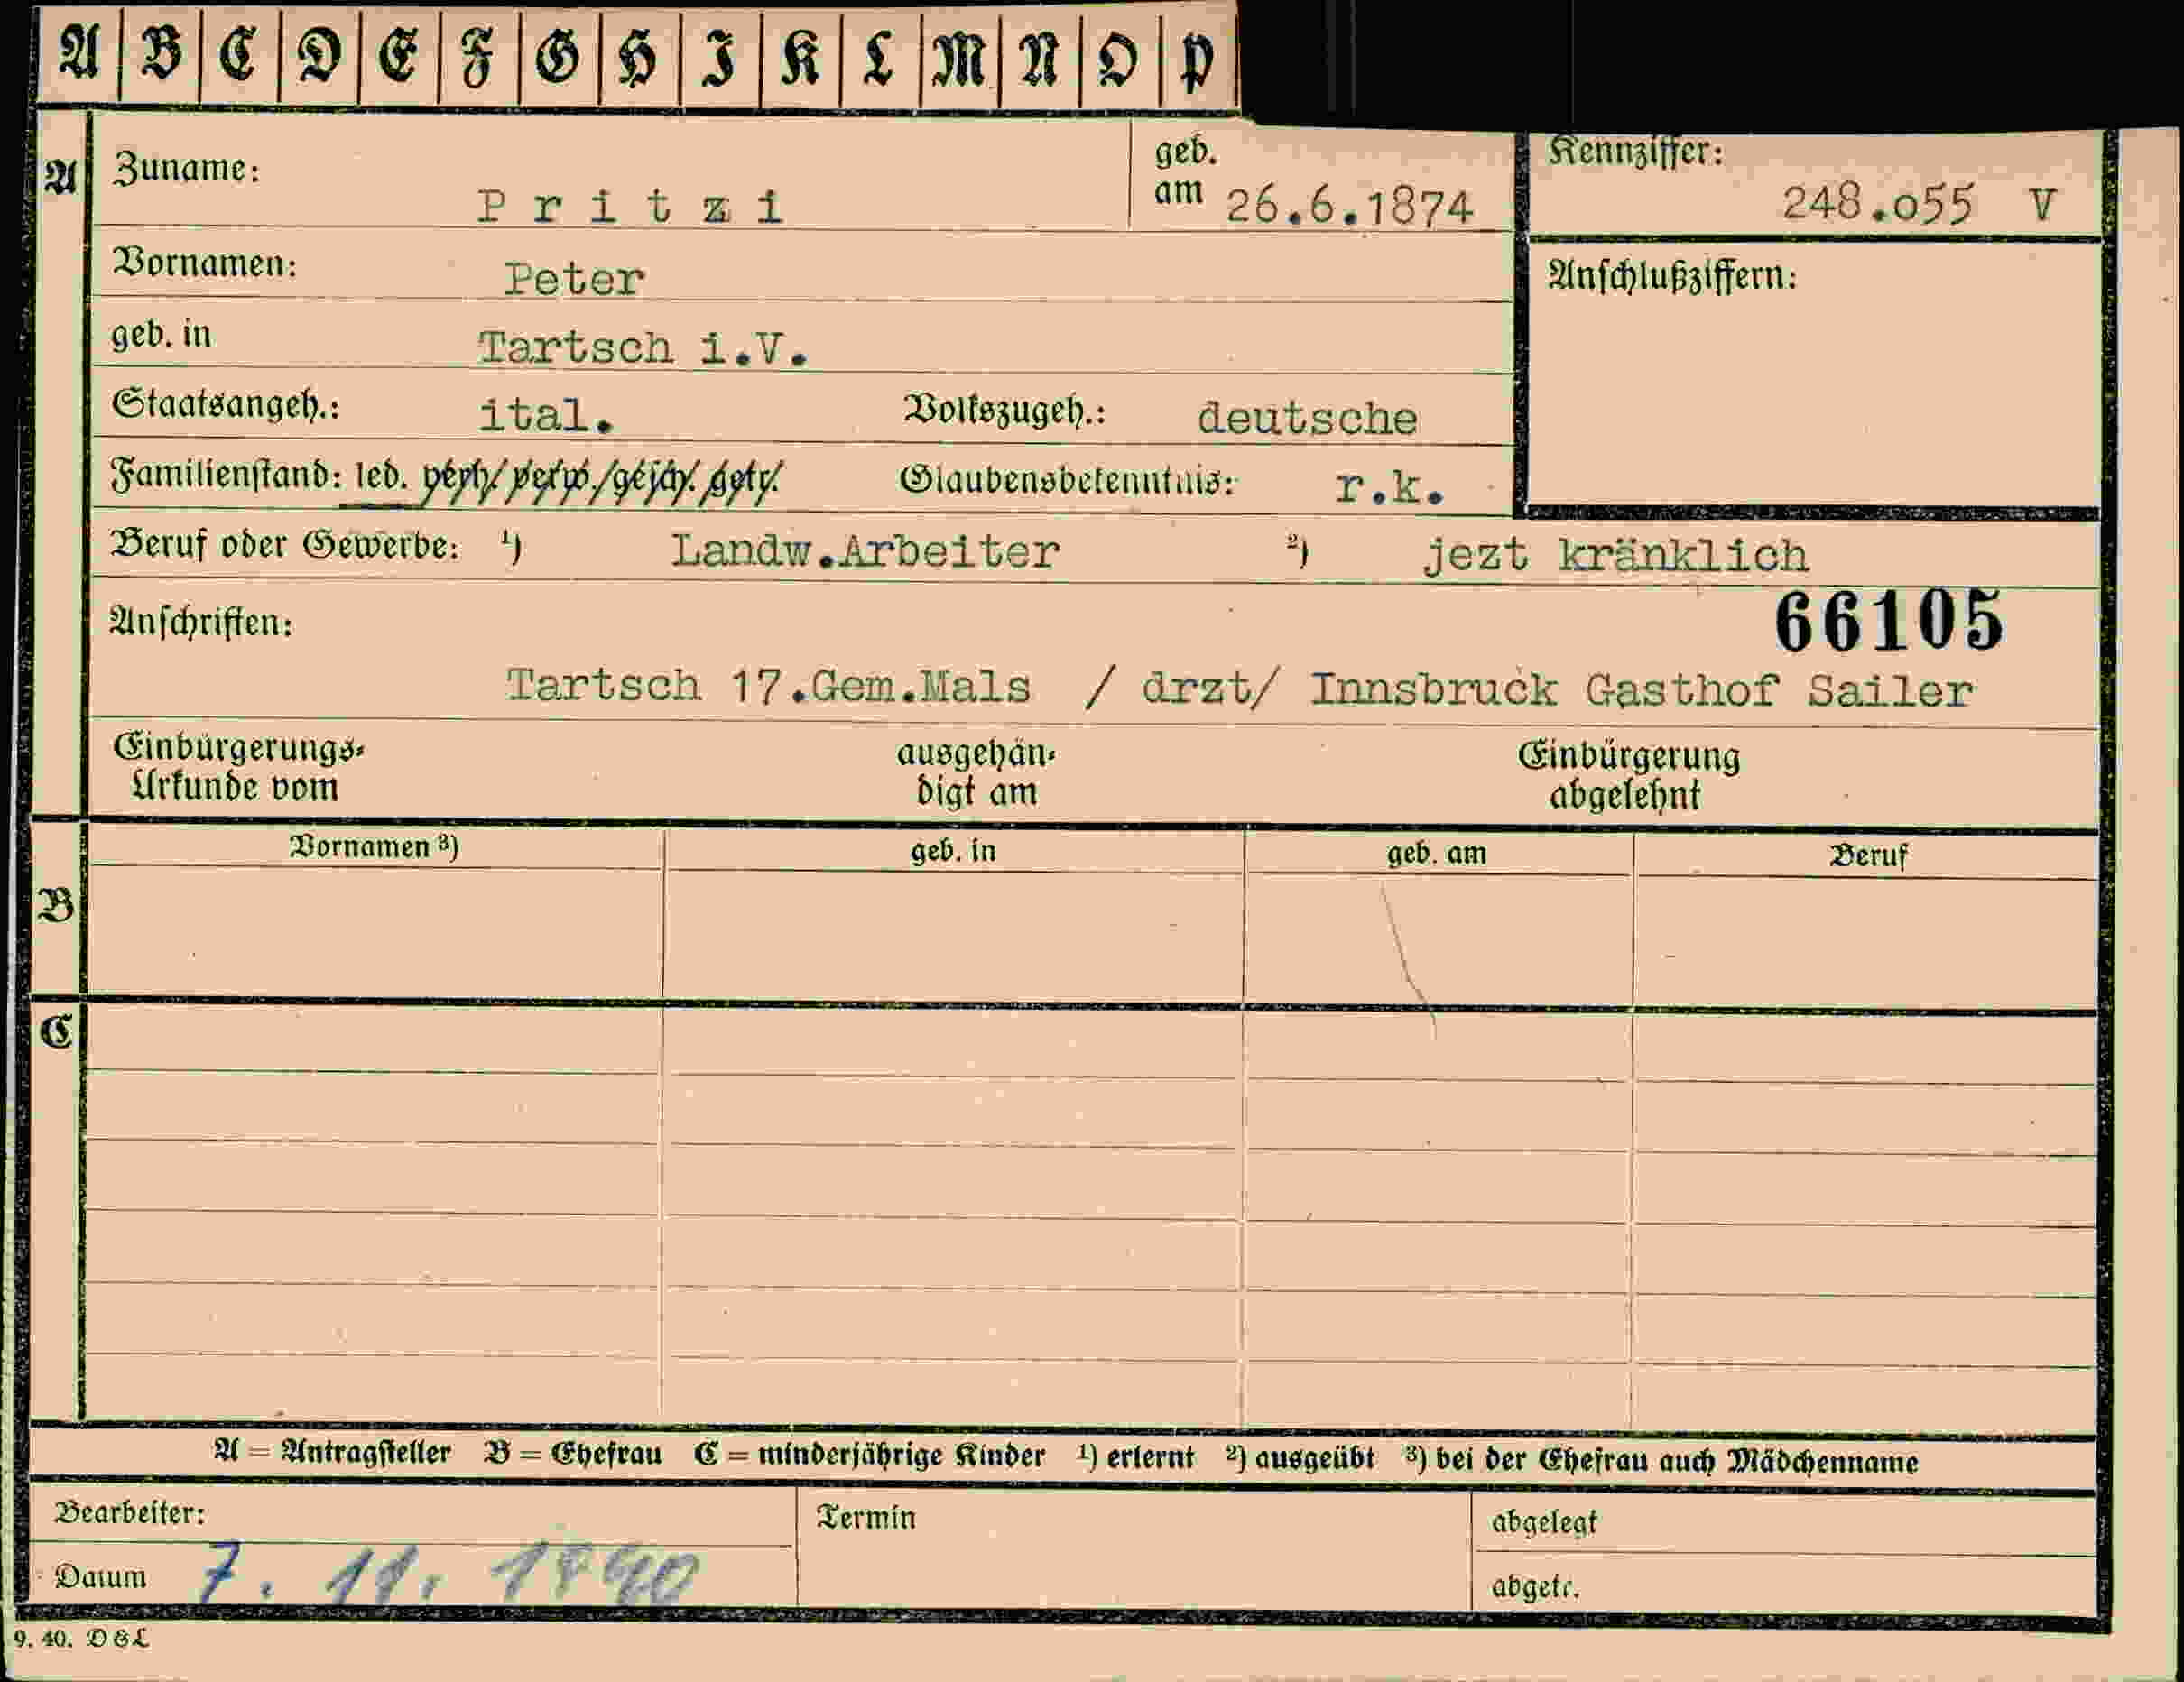 A B C D E F G H I K L M N O P
A Zuname: Pritzi geb. am 26.6.1874 Kennziffer: 248.055 V
Vornamen: Peter Anschlußziffern:
geb. in Tartsch i.V.
Staatsangeh.: ital. Volkszugeh.: deutsche
Familienstand: led. verh. / verw. / gesch. getr. Glaubensbekenntnis: r.k.
Beruf oder Gewerbe: 1) Landw.Arbeiter 2) jezt kränklich
Anschriften: 66105
Tartsch 17.Gem.Mals / drzt/ Innsbruck Gasthof Sailer
Einbürgerungs- ausgehän- Einbürgerung
Urkunde vom digt am abgelehnt
Vornamen 3) geb. in geb. am Beruf
B
C
A = Antragsteller B = Ehefrau C = minderjährige Kinder 1) erlernt 2) ausgeübt 3) bei der Ehefrau auch Mädchenname
Bearbeiter: Termin abgelegt
Datum 7. 11. 1940 abgetr.
9. 40. D&L